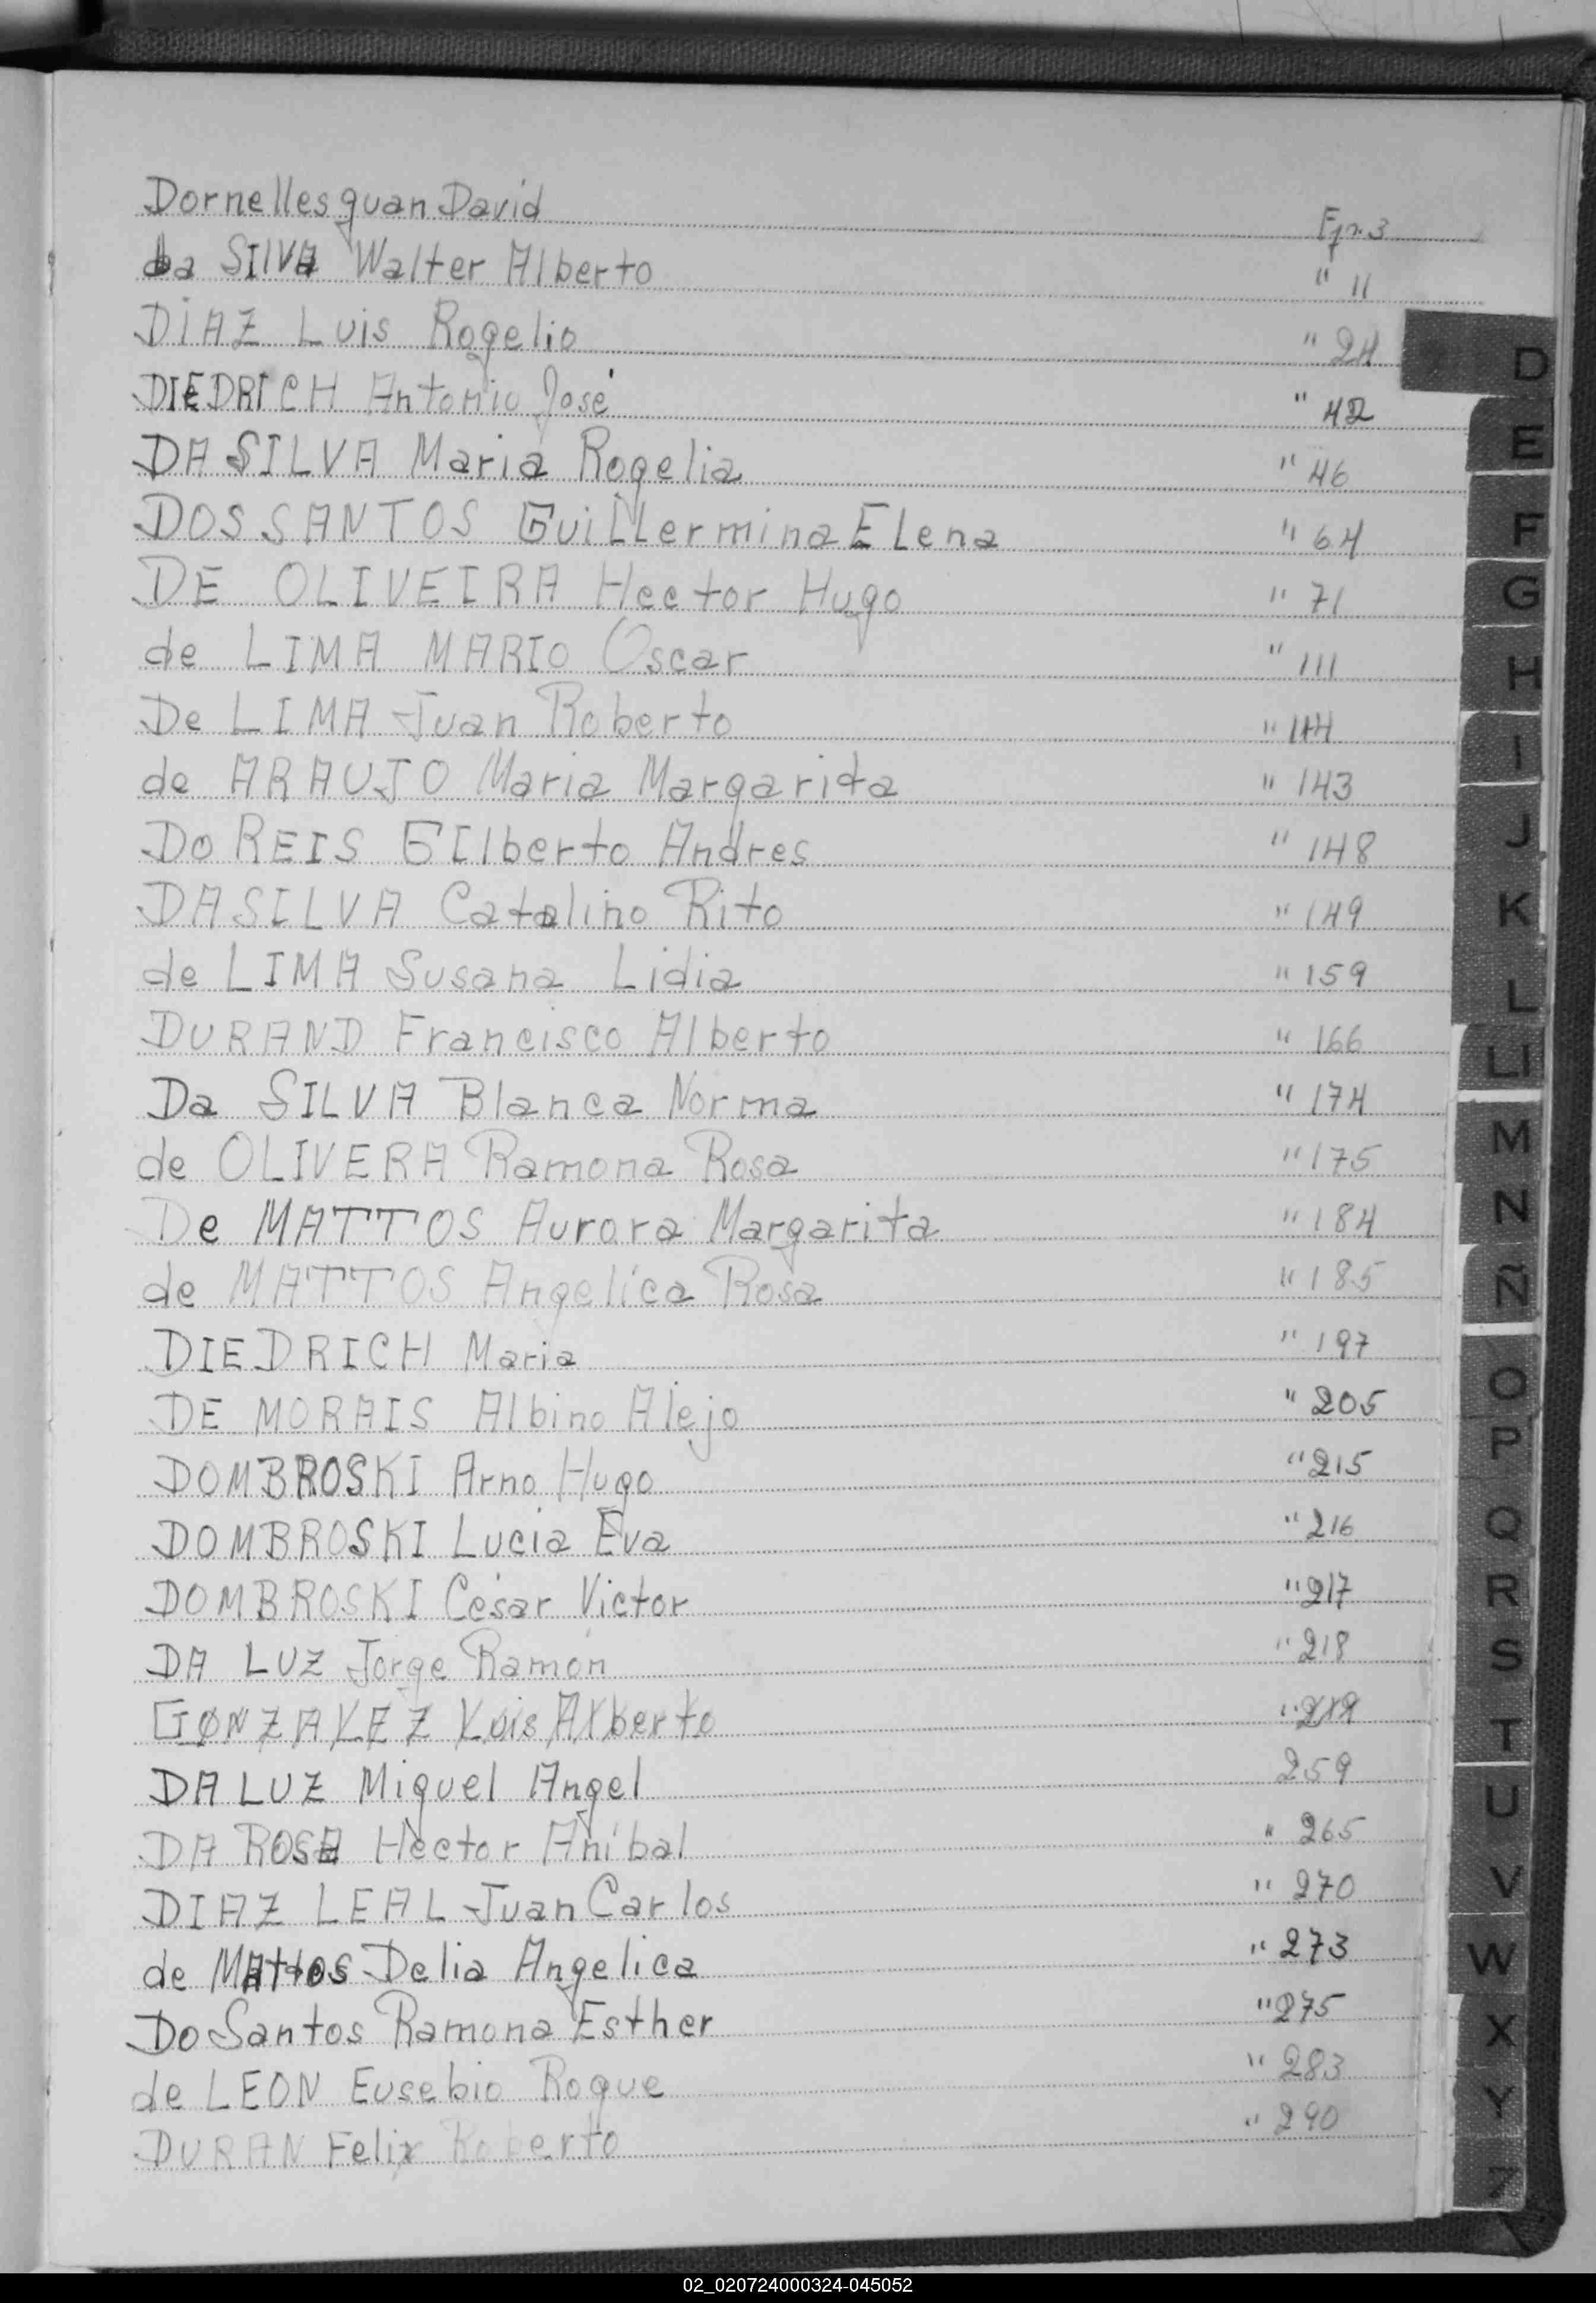 Dornelles Juan David Fjn. 3
da SILVA Walter Alberto " 11
DIAZ Luis Rogelio " 24
DIEDRICH Antonio José " 42
DA SILVA Maria Rogelia " 46
DOS SANTOS GuiLLermina ELena " 64
DE OLIVEIRA Hector Hugo " 71
de LIMA MARIO Oscar " 111
De LIMA Juan Roberto " 114
de ARAUJO Maria Margarita " 143
Do REIS GIlberto Andres " 148
DA SILVA Catalino Rito " 149
de LIMA Susana Lidia " 159
DURAND Francisco Alberto " 166
Da SILVA Blanca Norma " 174
de OLIVERA Ramona Rosa " 175
De MATTOS Aurora Margarita " 184
de MATTOS Angelica Rosa " 185
DIEDRICH Maria " 197
DE MORAIS Albino Alejo " 205
DOMBROSKI Arno Hugo " 215
DOMBROSKI Lucia Eva " 216
DOMBROSKI César Victor " 217
DA LUZ Jorge Ramón " 218
GONZALEZ Luis Alberto "
DA LUZ Miguel Angel 259
DA ROSA Hector Aníbal " 265
DIAZ LEAL Juan Carlos " 270
de MAttos Delia Angelica " 273
Do Santos Ramona Esther " 275
de LEON Eusebio Roque " 283
DURAN Felix Roberto " 290
D
E
F
G
H
I
J
K
L
Ll
M
N
Ñ
O
P
Q
R
S
T
U
V
W
X
Y
Z
02_020724000324-045052